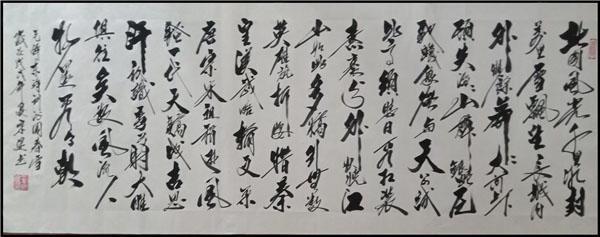 北国风光千里冰封
万里雪飘望长城内
外惟余莽莽大河上下
顿失滔滔山舞银蛇原
驰蜡象欲与天公试
比高须晴日看红装
素裹分外妖娆江
山如此多娇引无数
英雄竞折腰惜秦
皇汉武略输文采
唐宗宋祖稍逊风
骚一代天骄成吉思
汗只识弯弓射大雕
俱往矣数风流人
物还看今朝
毛泽东诗词沁园春雪
岁在戊戌年